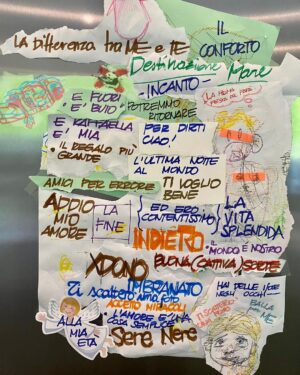 LA DIFFERENZA tra ME e TE
IL
CONFORTO
Destinazione Mare
INCANTO
E FUORI
E' BUIO
POTREMMO
RITORNARE
E RAFFAELLA
E' MIA
PER DIRTI
CIAO!
IL REGALO PIÙ
GRANDE
L'ULTIMA NOTTE AL
MONDO
AMICI PER ERRORE
TI VOGLIO
BENE
ADDIO
MIO
AMORE
LA
FINE
ED ERO
CONTENTISSIMO
LA
VITA
SPLENDIDA
INDIETRO
IL
MONDO È NOSTRO
XDONO
BUONA (CATTIVA) SORTE
IMBRANATO
Ti scatterò una foto
ACCETTO MIRACOLI
HAI DELLE ISOLE
NEGLI OCCHI
L'AMORE È UNA
COSA SEMPLICE
BALLA
per ME
ALLA
MIA
ETÀ
Sere Nere